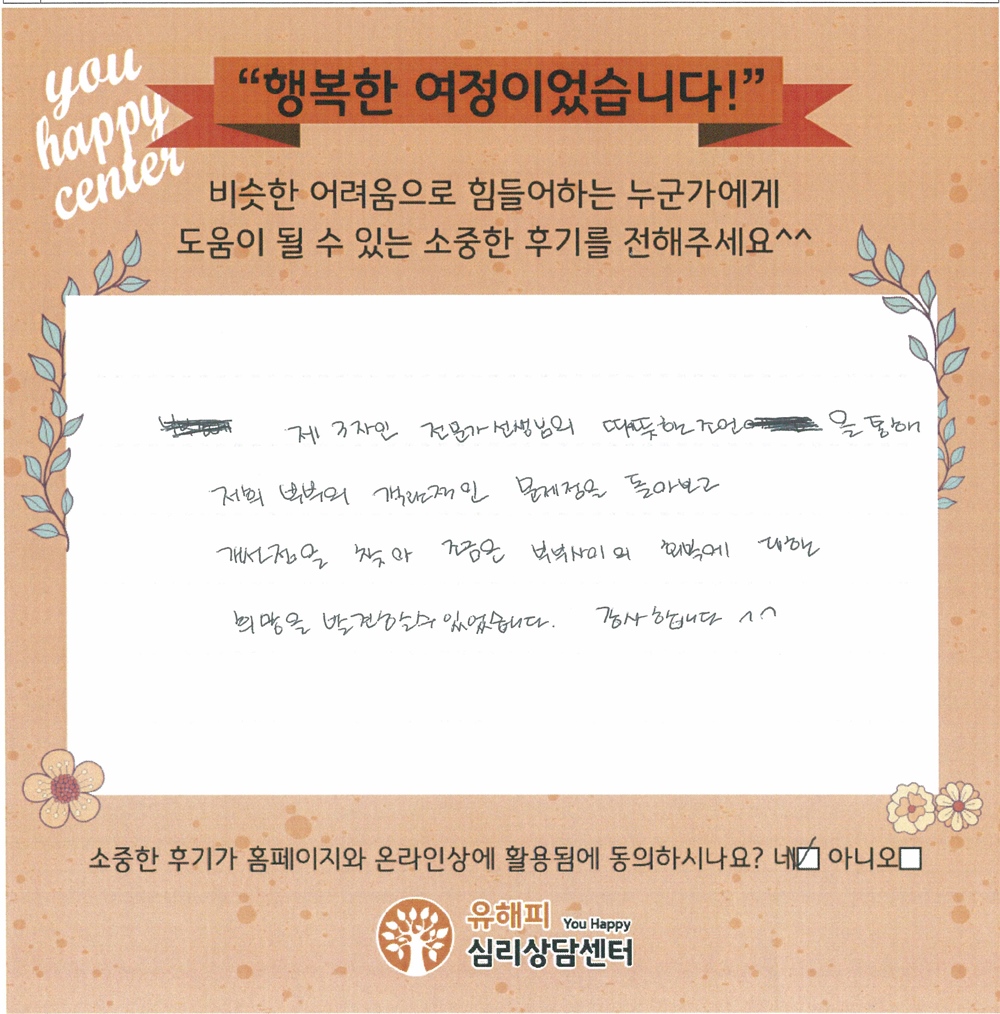 you
happy
center
“행복한 여정이었습니다!”
비슷한 어려움으로 힘들어하는 누군가에게
도움이 될 수 있는 소중한 후기를 전해주세요^^
제 3자인 전문가 선생님의 따뜻한 조언 을 통해
저희 부부의 객관적인 문제점을 돌아보고
개선점을 찾아 조금은 부부사이의 회복에 대한
희망을 발견할수있었습니다. 감사합니다 ^^
소중한 후기가 홈페이지와 온라인상에 활용됨에 동의하시나요? 네 아니오
유해피 You Happy
심리상담센터